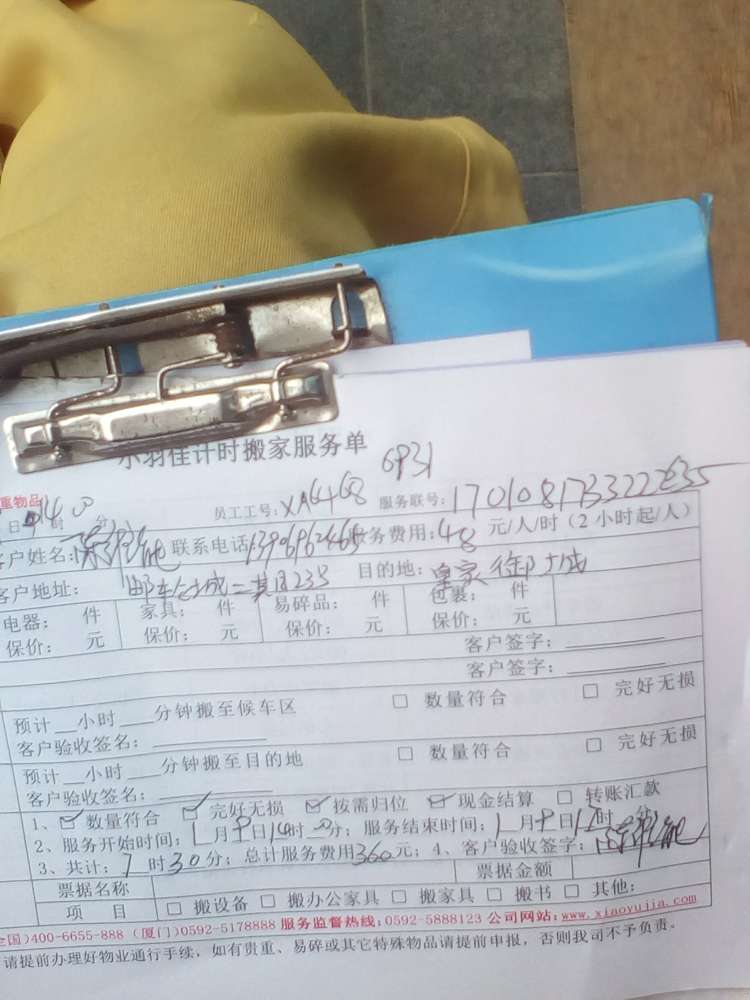 小羽佳计时搬家服务单
6931
重物品
日 14时 分 员工工号: XA6468 服务联号: 170108173322
客户姓名: 联系电话 服务费用: 48 元/人/时(2小时起/人)
客户地址: 目的地: 皇家
电器: 件 家具: 件 易碎品: 件 包裹: 件
保价: 元 保价: 元 保价: 元 保价: 元
客户签字:
客户签字:
预计__小时___分钟搬至候车区 □ 数量符合 □ 完好无损
客户验收签名:
预计__小时___分钟搬至目的地 □ 数量符合 □ 完好无损
客户验收签名:
1、☑ 数量符合 ☑ 完好无损 ☑ 按需归位 ☑ 现金结算 □ 转账汇款
2、服务开始时间: 1月9日14时 分; 服务结束时间: 1月9日 时 分
3、共计: 7时30分; 总计服务费用360元; 4、客户验收签字:
票据名称 票据金额
项 目 □ 搬设备 □ 搬办公家具 □ 搬家具 □ 搬书 □ 其他:
全国)400-6655-888 (厦门)0592-5178888 服务监督热线: 0592-5888123 公司网站: www.xiaoyujia.com
请提前办理好物业通行手续, 如有贵重、易碎或其它特殊物品请提前申报, 否则我司不予负责。